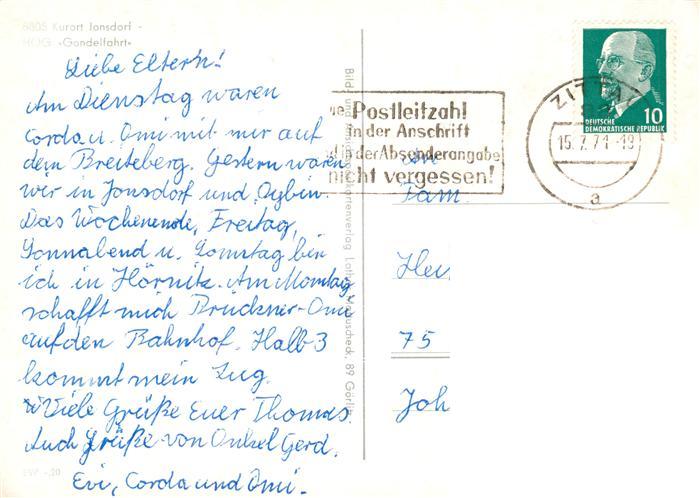 8805 Kurort Jonsdorf -
HOG »Gondelfahrt«
Liebe Eltern!
Am Dienstag waren
Corda u. Omi mit mir auf
dem Breiteberg. Gestern waren
wir in Jonsdorf und Oybin.
Das Wochenende, Freitag,
Sonnabend u. Sonntag bin
ich in Hörnitz. Am Montag
schafft mich Brückner-Omi
auf den Bahnhof. Halb 3
kommt mein Zug.
Viele Grüße Euer Thomas.
Auch Grüße von Onkel Gerd.
Evi, Corda und Omi.
EVP -,20
Bild und Verlag 89 Görlitz
Postleitzahl
in der Anschrift
der Absenderangabe
nicht vergessen!
ZITTAU
15.7.71-19
a
10
DEUTSCHE
DEMOKRATISCHE REPUBLIK
An
Fam.
Hei
75
Joh